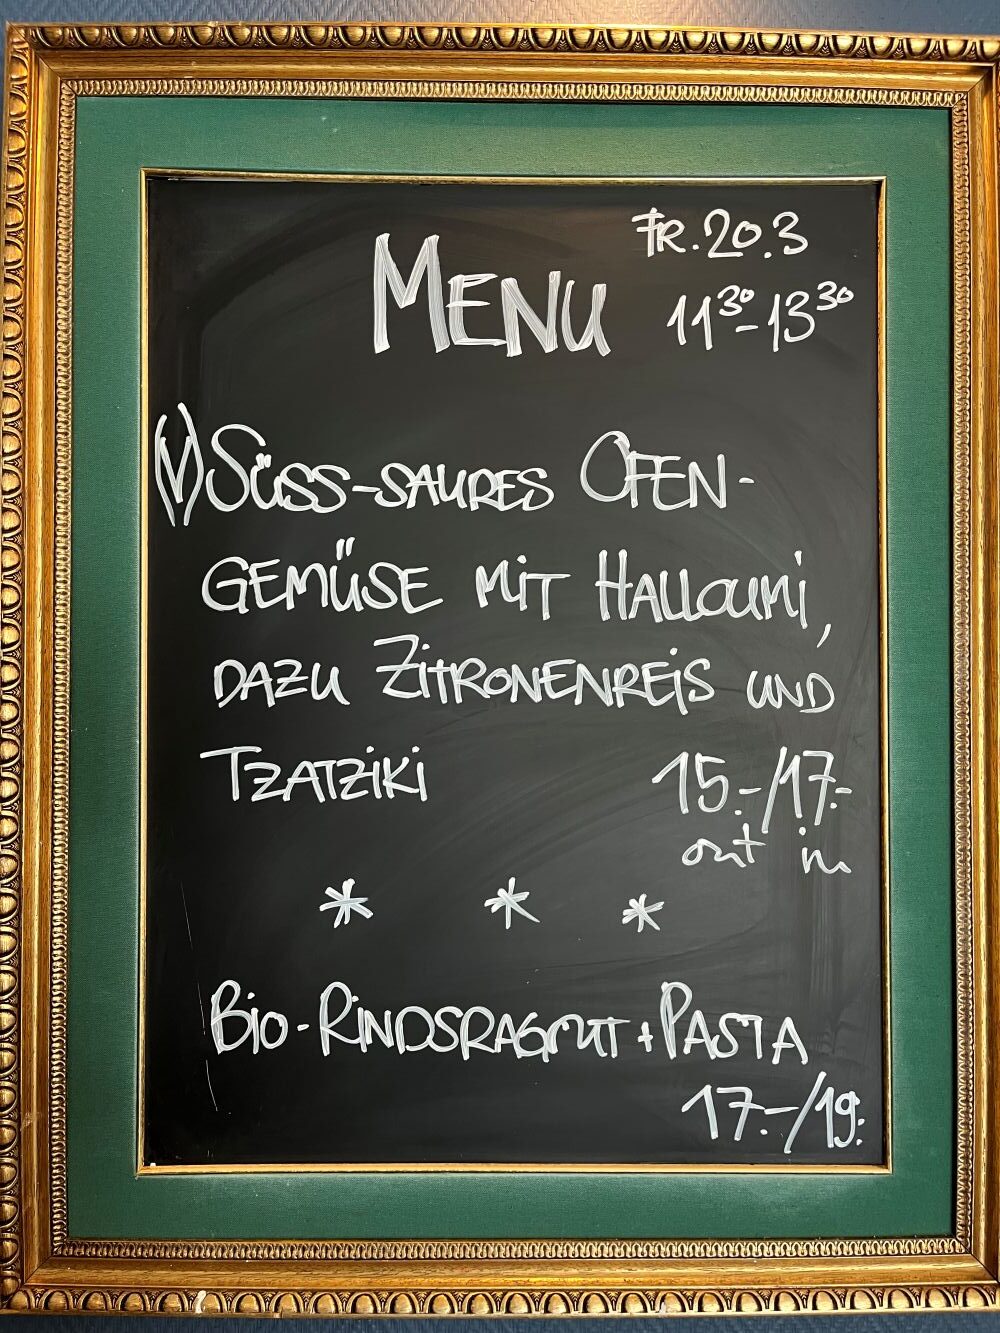 MENU FR. 20.3
11³⁰-13³⁰
(V) SÜSS-SAURES OFEN-
GEMÜSE MIT HALLOUMI,
DAZU ZITRONENREIS UND
TZATZIKI 15.-/17.-
out in
* * *
BIO-RINDSRAGOUT + PASTA
17.-/19.-